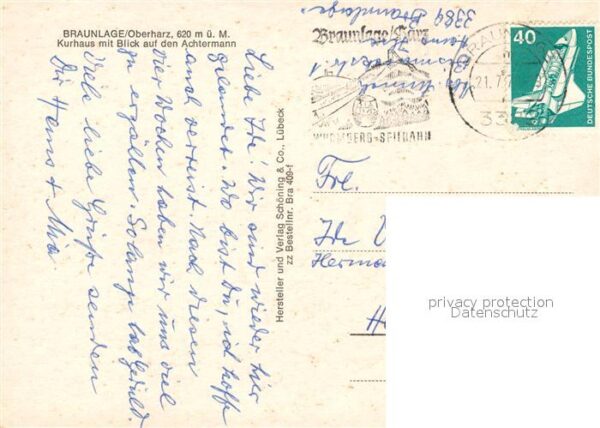 BRAUNLAGE/Oberharz, 620 m ü. M.
Kurhaus mit Blick auf den Achtermann
Liebe Ide! Wir sind wieder hier
gelandet. Wo bist Du, ich hoffe
auch verreist. Nach diesen
vier Wochen haben wir uns viel
zu erzählen. Solange lab Geduld.
Viele liebe Grüße senden
Dir Hans + Mia
Hersteller und Verlag Schöning & Co., Lübeck
zz Bestellnr. Bra 409-f
3389 Braunlage
Braunlage/Harz
WURMBERG-SEILBAHN
BRAUNLAGE
21.7.
40
DEUTSCHE BUNDESPOST
Frl.
Ide
Herma
privacy protection
Datenschutz